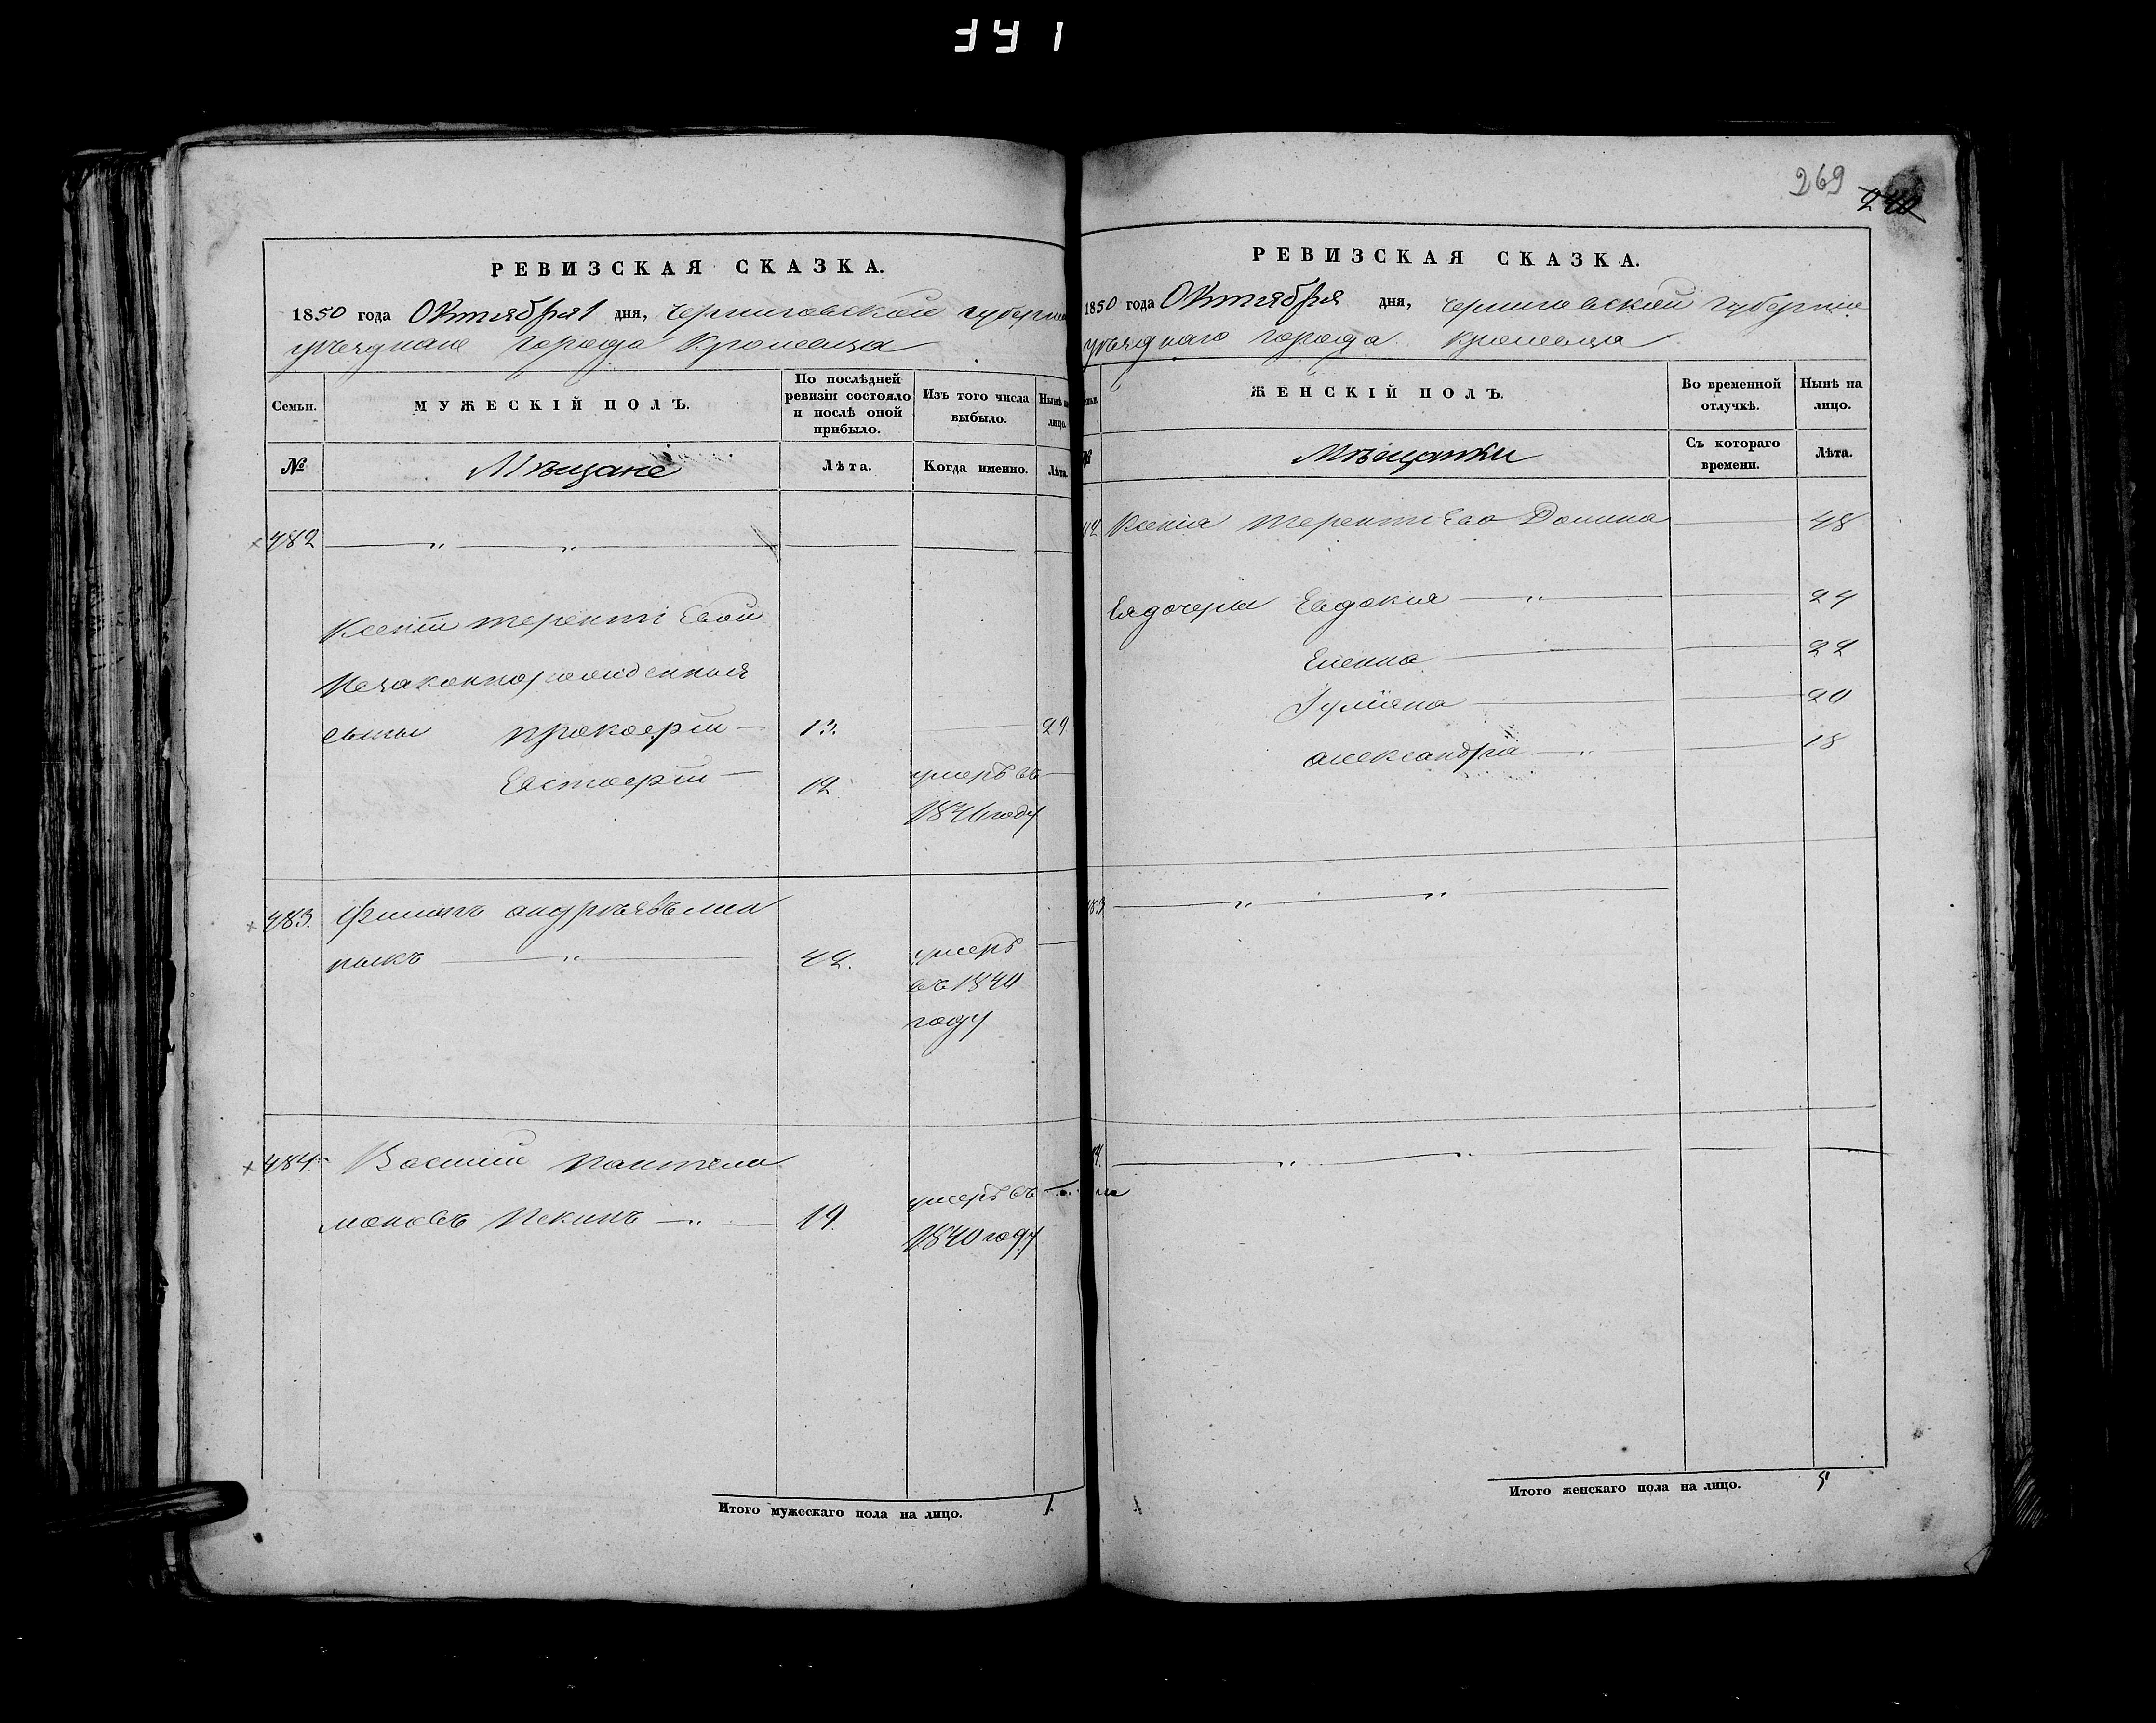 341
269
240
РЕВИЗСКАЯ СКАЗКА.
1850 года Октября 1 дня, Черниговской губерніи
уѣзднаго города Кролевца
Семьи.
МУЖЕСКІЙ ПОЛЪ.
По послѣдней ревизіи состояло и послѣ оной прибыло.
Изъ того числа выбыло.
Нынѣ на лицо.
№
Мѣщане
Лѣта.
Когда именно.
Лѣта.
482
Ксеніи Терентіевой
Незаконнорожденныя
сыны Прокофій — 13. — 29
Евстафій — 12 умеръ въ —
1846 году
483. Филипъ Андрѣевъ
никъ — " — 42. умеръ
въ 1840
году
484. Василій Пантели
моновъ Пекинъ — " — 19. умеръ въ
1840 году
Итого мужескаго пола на лицо. 1.
РЕВИЗСКАЯ СКАЗКА.
1850 года Октября дня, Черниговской губерніи
уѣзднаго города Кролевца
ЖЕНСКІЙ ПОЛЪ.
Во временной отлучкѣ.
Нынѣ на лицо.
Мѣщанки
Съ котораго времени.
Лѣта.
Ксенія Терентіева Домина — 48
Ея дочери Евдокія — " — 24
Елена — 22
Іулияна — 20
Александра — " — 18
Итого женскаго пола на лицо. 5